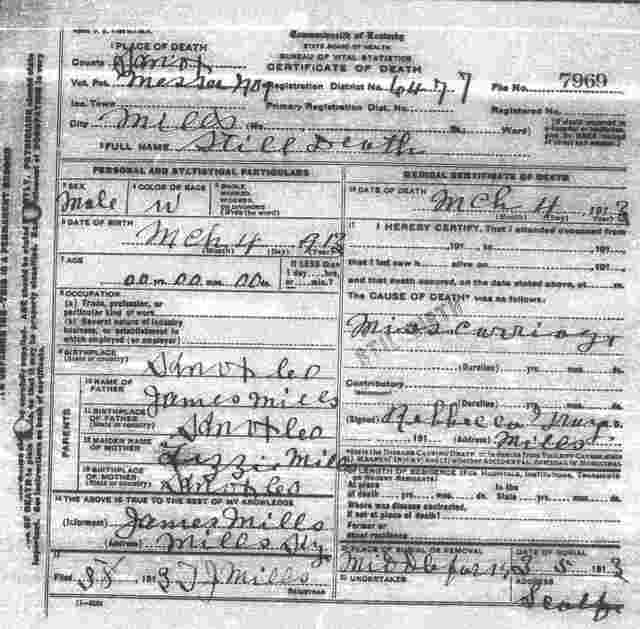 Commonwealth of Kentucky
STATE BOARD OF HEALTH
BUREAU OF VITAL STATISTICS
CERTIFICATE OF DEATH
1 PLACE OF DEATH
County Knox
Vot. Pct. Messer No Registration District No. 6477 File No. 7969
Inc. Town Primary Registration Dist. No. Registered No.
City Mills (No. St. Ward)
2 FULL NAME Still Death
PERSONAL AND STATISTICAL PARTICULARS
3 SEX Male
4 COLOR OR RACE W
5 SINGLE, MARRIED, WIDOWED, OR DIVORCED (Write the word)
6 DATE OF BIRTH Mch 4 1913
(Month) (Day) (Year)
7 AGE 00 yrs. 00 mos. 00 ds.
IF LESS than 1 day, hrs. or min.?
8 OCCUPATION
(a) Trade, profession, or particular kind of work
(b) General nature of industry business, or establishment in which employed (or employer)
9 BIRTHPLACE (State or country) Knox Co
PARENTS
10 NAME OF FATHER James Mills
11 BIRTHPLACE OF FATHER (State or country) Knox Co
12 MAIDEN NAME OF MOTHER Lizzie Mills
13 BIRTHPLACE OF MOTHER (State or country) Knox Co
14 THE ABOVE IS TRUE TO THE BEST OF MY KNOWLEDGE
(Informant) James Mills
(Address) Mills Ky
15
Filed 3 8 1913 T J Mills
REGISTRAR
MEDICAL CERTIFICATE OF DEATH
16 DATE OF DEATH Mch 4 1913
(Month) (Day) (Year)
17 I HEREBY CERTIFY, That I attended deceased from
191 to 191
that I last saw h alive on 191
and that death occurred, on the date stated above, at m.
The CAUSE OF DEATH* was as follows:
Miss Carriage
STILL BIRTH
(Duration) yrs. mos. ds.
Contributory
(Duration) yrs. mos. ds.
(Signed)
191 (Address) Mills
18 LENGTH OF RESIDENCE (For Hospitals, Institutions, Transients or Recent Residents)
At place of death yrs. mos. ds. In the State yrs. mos. ds.
Where was disease contracted, if not at place of death?
Former or usual residence
19 PLACE OF BURIAL OR REMOVAL
DATE OF BURIAL 3 5 1913
20 UNDERTAKER
ADDRESS